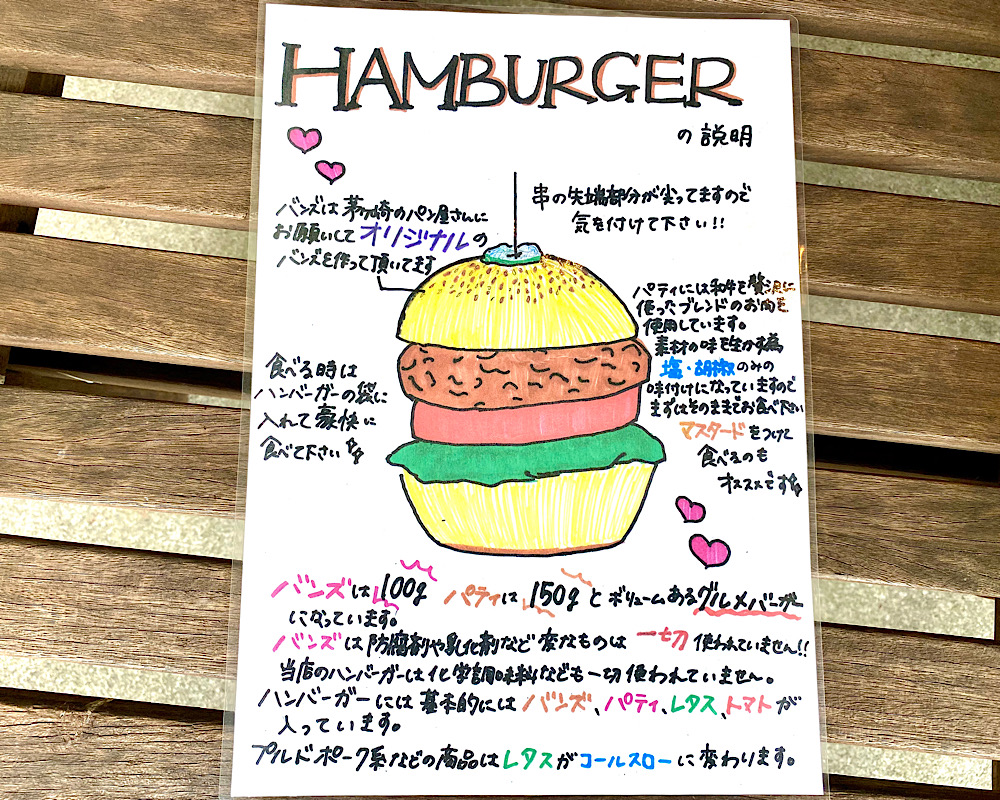 HAMBURGER
の説明
バンズは茅ヶ崎のパン屋さんに
お願いしてオリジナルの
バンズを作って頂いてます
串の先端部分が尖ってますので
気を付けて下さい!!
パティには和牛を贅沢に
使ったブレンドのお肉を
使用しています。
素材の味を生かす為
塩・胡椒のみの
味付けになっていますので
まずはそのままでお食べ下さい
マスタードをつけて
食べるのも
オススメです
食べる時は
ハンバーガーの袋に
入れて豪快に
食べて下さい
バンズは100g パティは150gとボリュームあるグルメバーガー
になっています。
バンズは防腐剤や乳化剤など変なものは一切使われていません!!
当店のハンバーガーは化学調味料なども一切使われていません。
ハンバーガーには基本的にはバンズ、パティ、レタス、トマトが
入っています。
プルドポーク系などの商品はレタスがコールスローに変わります。